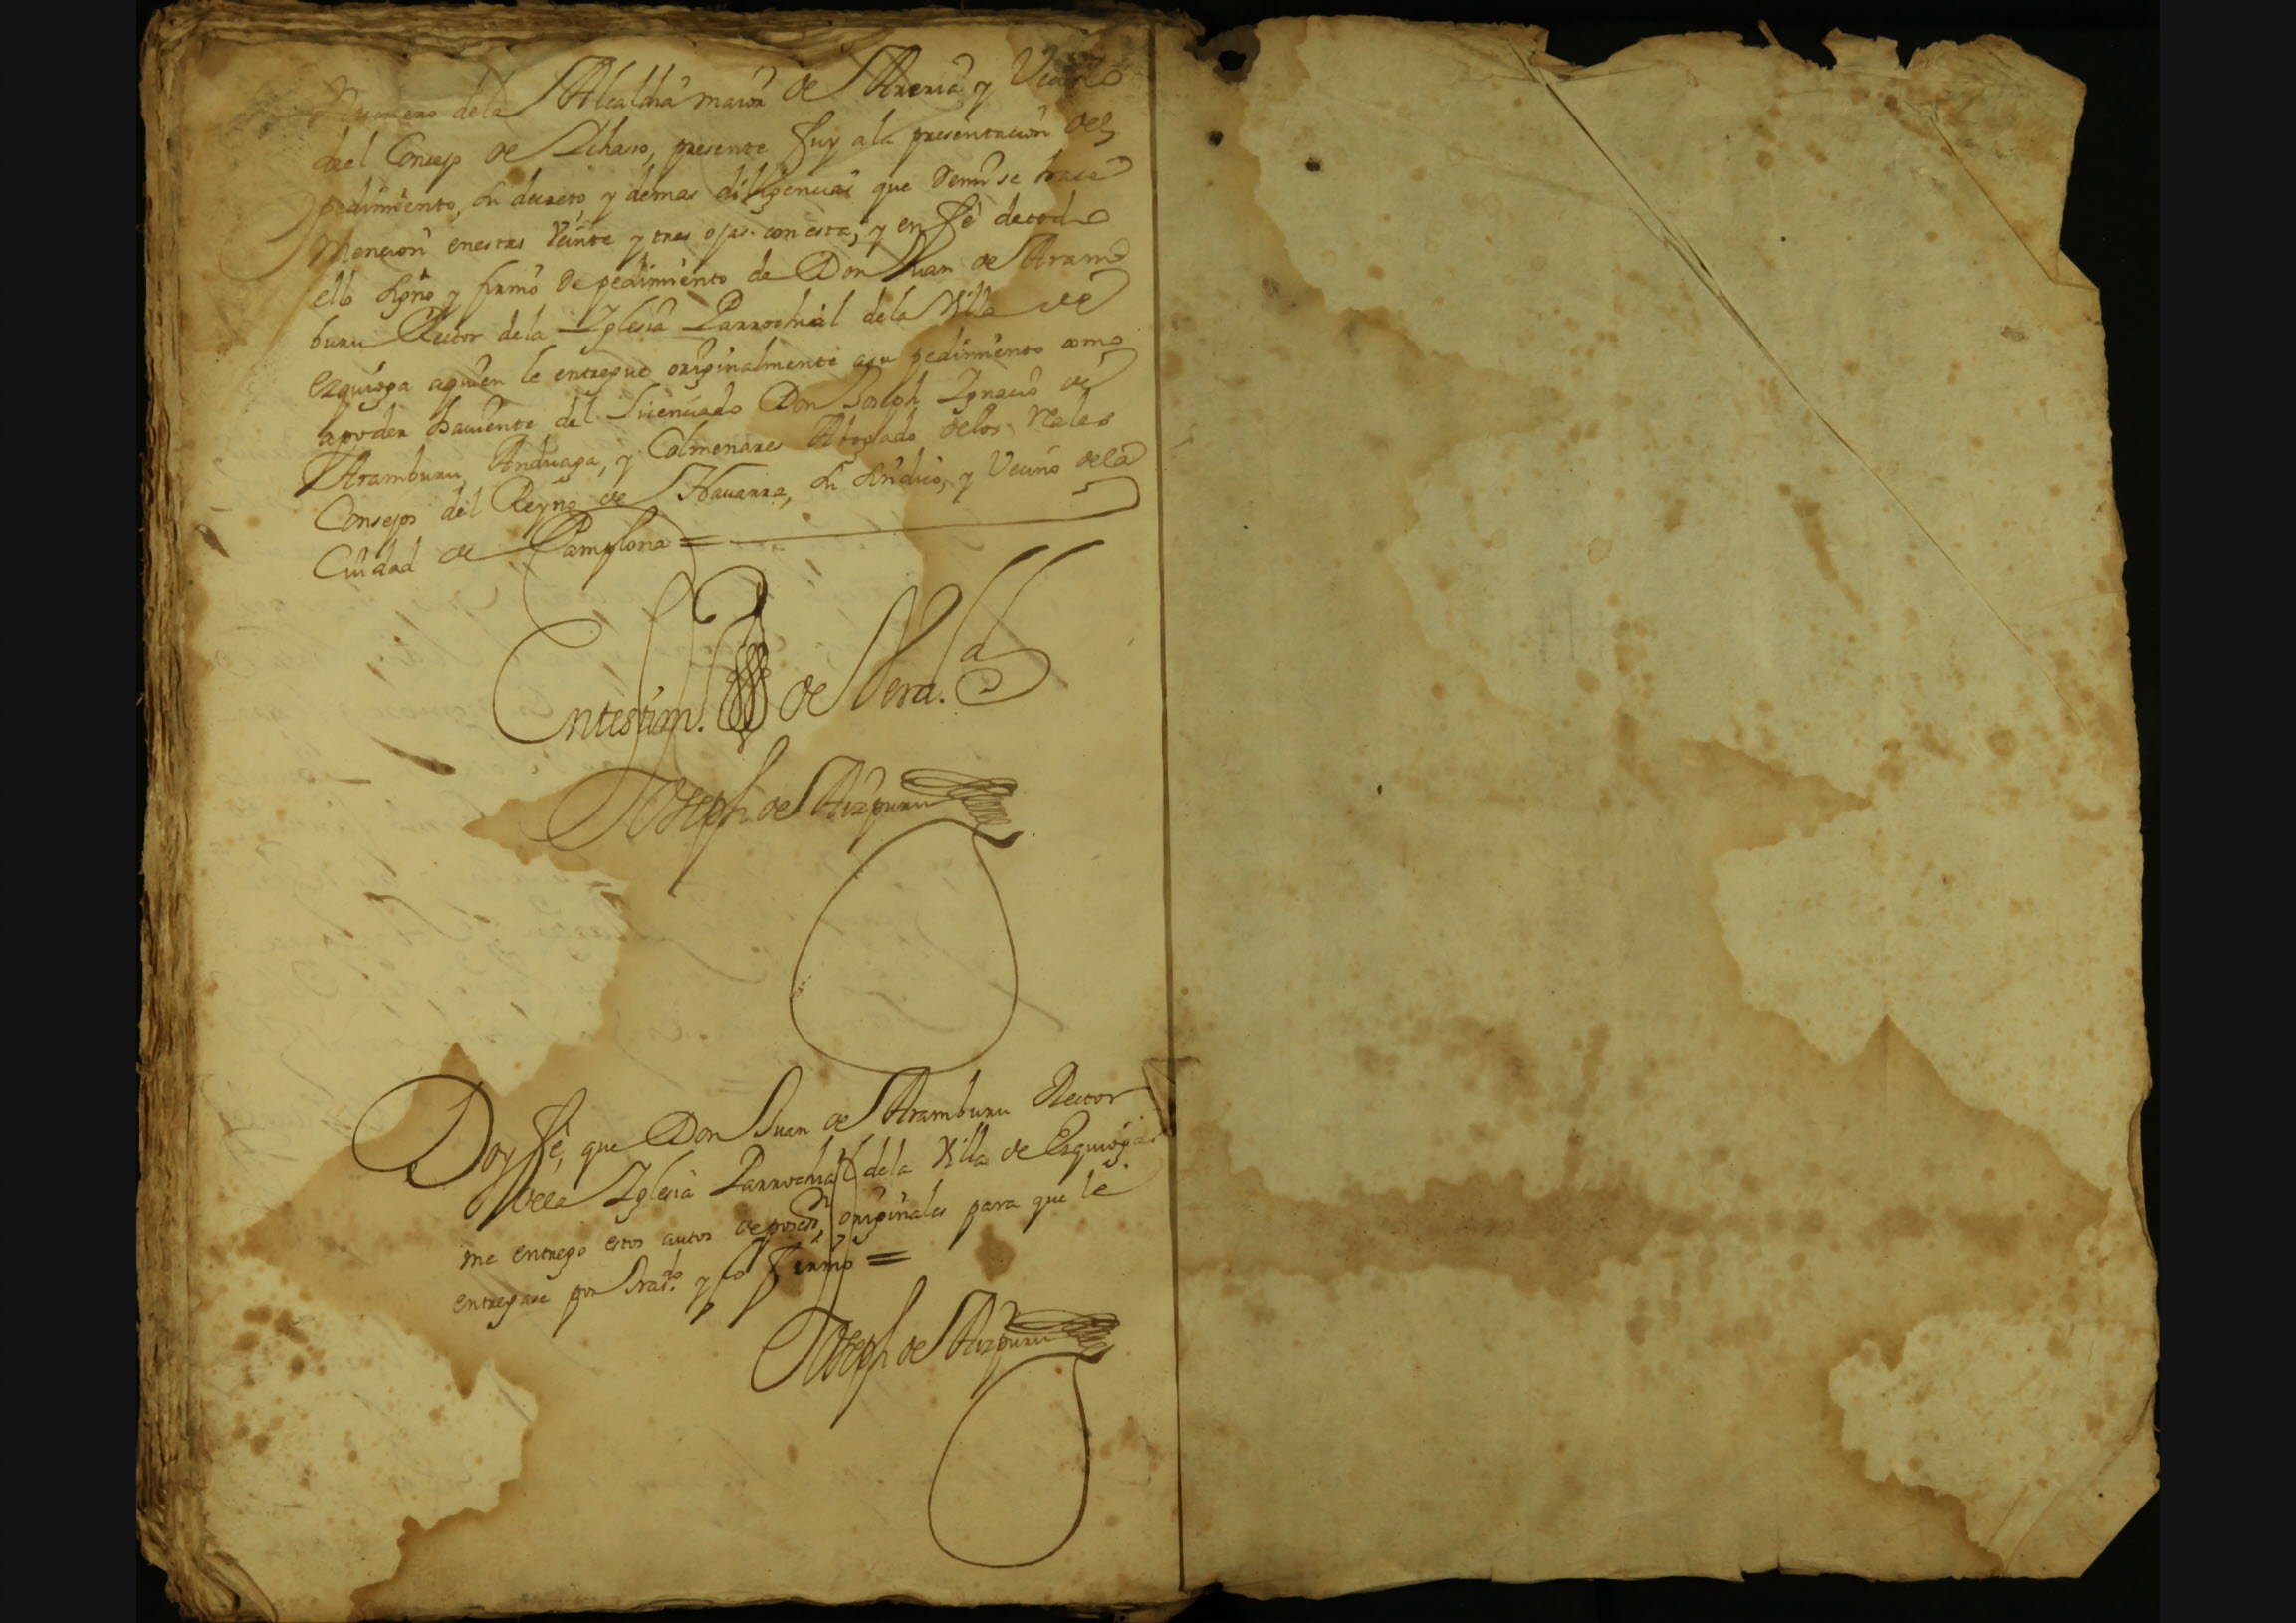 Numero dela Alcaldia maior de Areria y Vecino
del Concejo de Ichaso, presente fuy ala presentacion del
pedimiento, su decreto y demas diligencias que
Mencion enestas Veinte y tres ojas con esta, y en fé detodo
ello signo y firmo de pedimiento de Don Juan de Aram
buru Rector dela Iglesia Parrochial dela Villa de
Ezquioga aquien le entregue originalmente asu pedimiento como
apoder haviente del Licenciado Don Joseph Ignacio de
Aramburu, Anduaga, y Colmenares Abogado delos Rales
Consejos del Reyno de Navarra, su sindico, y Vecino dela
Ciudad de Pamplona =
Entestim. de Verd.
Joseph de Aizpuru
Doy fé, que Don Juan de Aramburu Rector
dela Iglesia Parrochial dela Villa de Ezquioga
me entrego estos autos de originales para que le
entregase por y lo firmo =
Joseph de Aizpuru